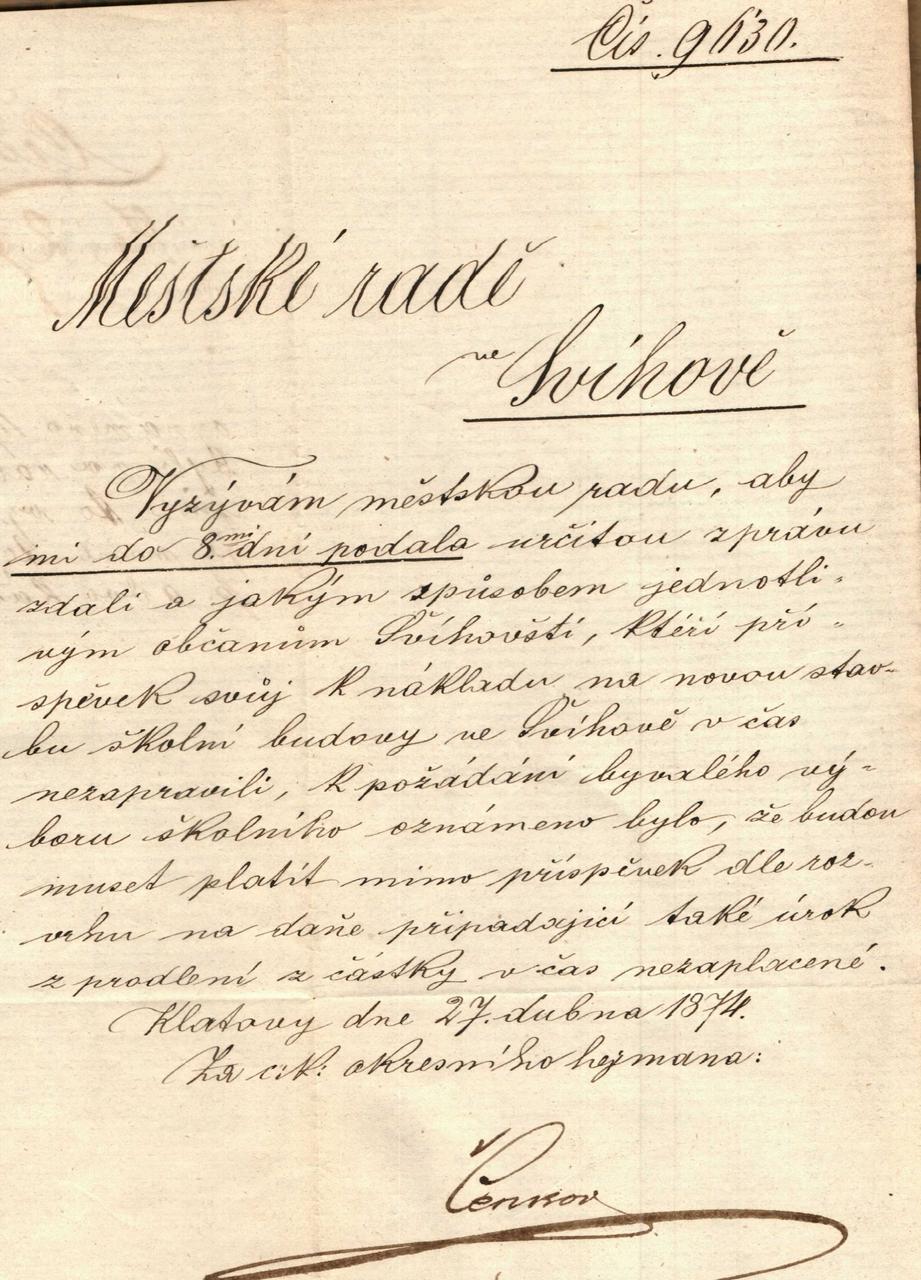 Čís. 9630.
Městské radě
ve Švihově
Vyzývám městskou radu, aby
mi do 8.mi dní podala určitou zprávu
zdali a jakým způsobem jednotli-
vým občanům Švihovští, kteří pří-
spěvek svůj k nákladu na novou stav-
bu školní budovy ve Švihově v čas
nezapravili, k požádání byvalého vý-
boru školního oznámeno bylo, že budou
muset platit mimo příspěvek dle roz-
vrhu na daňe připadající také úrok
z prodlení z částky v čas nezaplacené.
Klatovy dne 27. dubna 1874.
Za c.k: okresního hejmana: